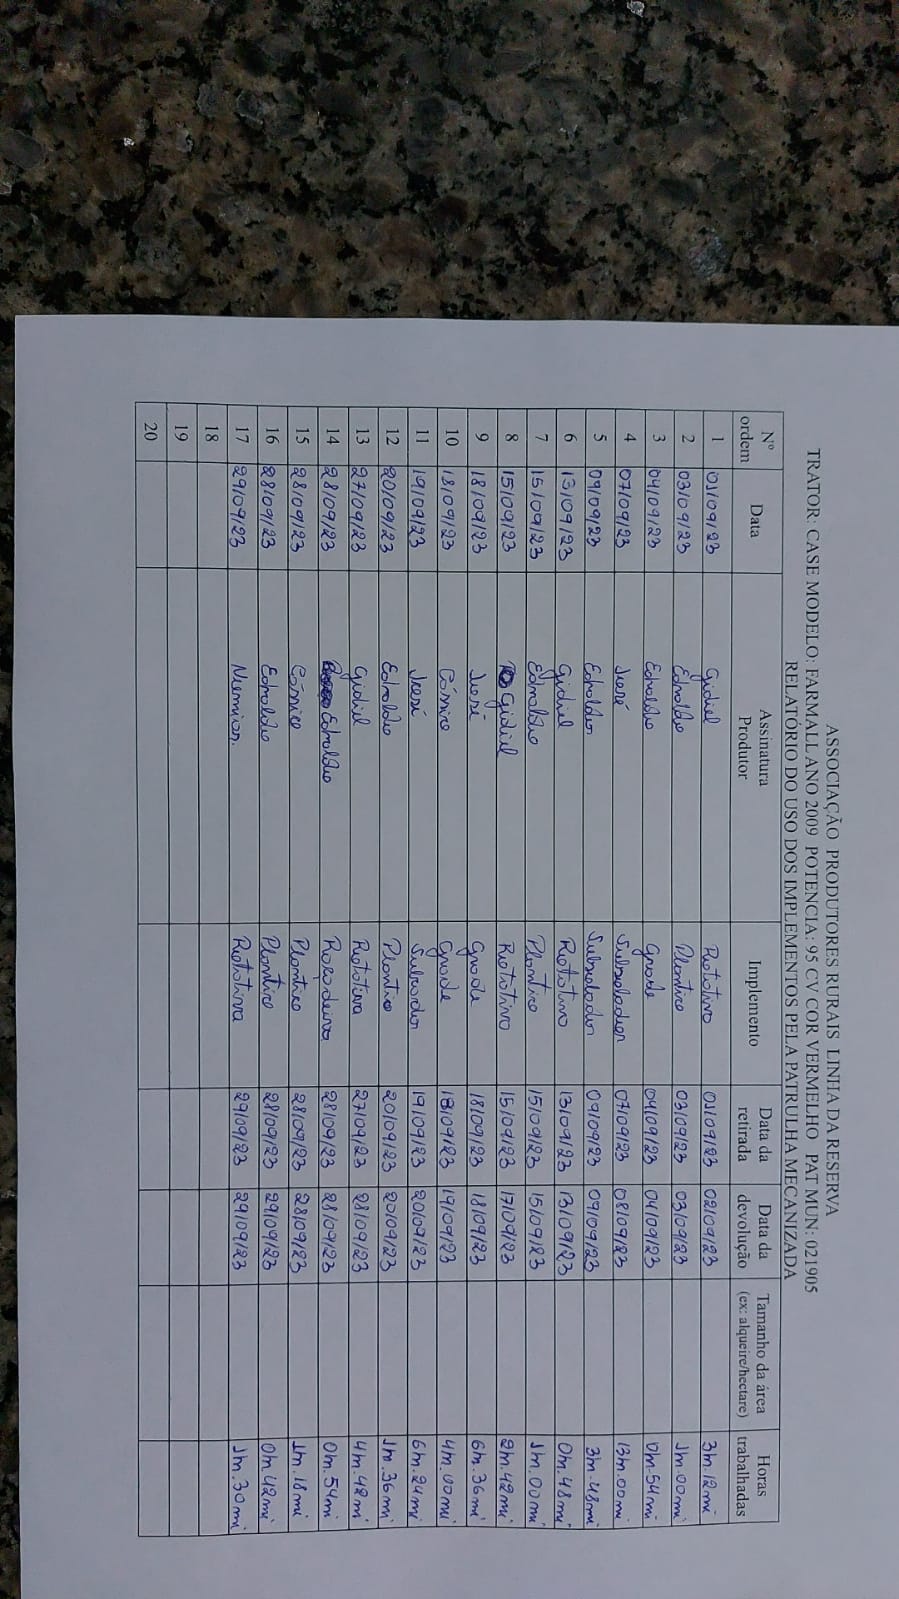 ASSOCIAÇÃO PRODUTORES RURAIS LINHA DA RESERVA
TRATOR: CASE MODELO: FARMALL ANO 2009 POTENCIA: 95 CV COR VERMELHO PAT MUN: 021905
RELATÓRIO DO USO DOS IMPLEMENTOS PELA PATRULHA MECANIZADA
Nº ordem Data Assinatura Produtor Implemento Data da retirada Data da devolução Tamanho da área (ex: alqueire/hectare) Horas trabalhadas
1 01/09/23 Gidiel Rotativo 01/09/23 02/09/23 3h.12mi
2 03/09/23 Ednaldio Plantiro 03/09/23 03/09/23 1h.00mi
3 04/09/23 Ednaldio Grade 04/09/23 04/09/23 0h.54mi
4 07/09/23 José Subsolador 07/09/23 08/09/23 13h.00mi
5 09/09/23 Ednaldio Subsolador 09/09/23 09/09/23 3h.48mi
6 13/09/23 Gidiel Rotativo 13/09/23 13/09/23 0h.48mi
7 15/09/23 Ednaldio Plantiro 15/09/23 15/09/23 1h.00mi
8 15/09/23 Gidiel Rotativo 15/09/23 17/09/23 2h.42mi
9 18/09/23 José Grade 18/09/23 18/09/23 6h.36mi
10 18/09/23 Grade 18/09/23 19/09/23 4h.00mi
11 19/09/23 José 19/09/23 20/09/23 6h.24mi
12 20/09/23 Ednaldio Plantiro 20/09/23 20/09/23 1h.36mi
13 27/09/23 Gidiel Rotativa 27/09/23 28/09/23 4h.42mi
14 28/09/23 Ednaldio Roçadeira 28/09/23 28/09/23 0h.54mi
15 28/09/23 Plantiro 28/09/23 28/09/23 1h.18mi
16 28/09/23 Ednaldio Plantiro 28/09/23 29/09/23 0h.42mi
17 29/09/23 Rotativa 29/09/23 29/09/23 1h.30mi
18
19
20